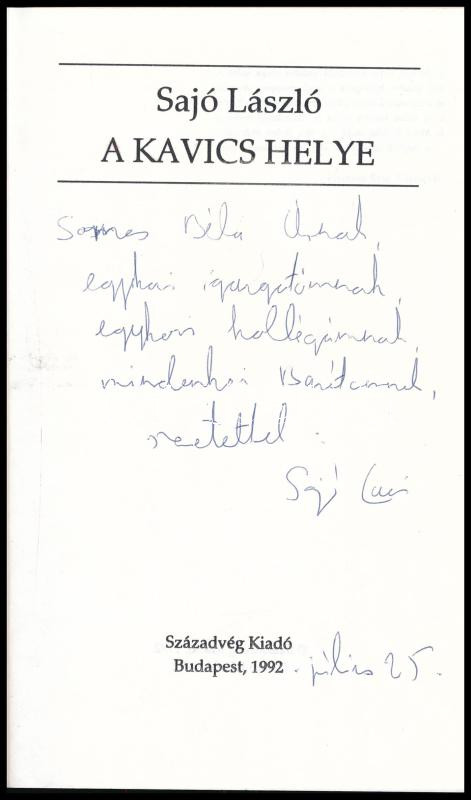 Sajó László
A KAVICS HELYE
Somos Béla Úrnak,
egykori igazgatómnak,
egykori kollégámnak,
mindenkori Barátomnak,
szeretettel :
Sajó Laci
Századvég Kiadó
Budapest, 1992. július 25.